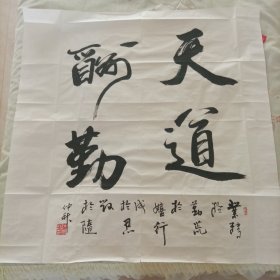 天道
酬勤
業精
於
勤荒
於
嬉行
成
於思
毀
於隨